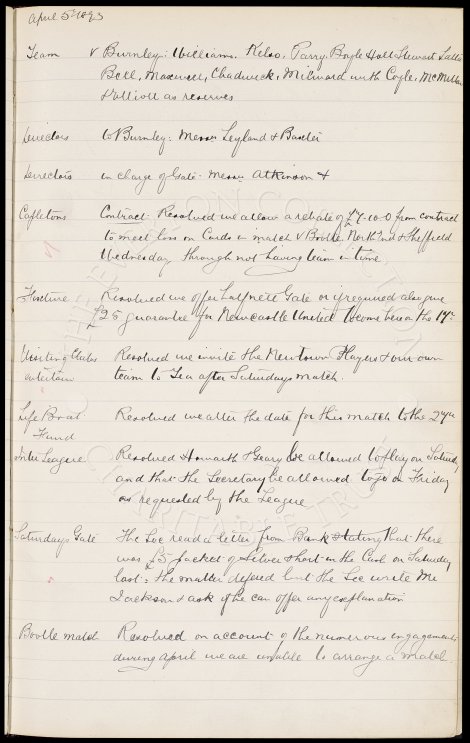 April 5th 1893
Team v Burnley: Williams, Kelso, Parry, Boyle Holt Stewart Latta
Bell, Maxwell, Chadwick, Milward with Coyle, McMillan
& Elliott as reserves
Directors to Burnley: Messrs Leyland & Baxter
Directors in charge of Gate: Messrs Atkinson &
Capletons Contract. Resolved we allow a rebate of £7-10-0 from contract
to meet loss on Cards in match v Bootle, North End & Sheffield
Wednesday through not having team in time
Fixture Resolved we offer half nett Gate or if required also give
£25 guarantee for Newcastle United to come here on the 17th
Visiting Clubs Resolved we invite the Newtown Players & our own
entertain team to Tea after Saturdays match.
Life Boat Resolved we alter the date for this match to the 27th
Fund
Inter League Resolved Howarth & Geary be allowed to play on Saturday
and that the Secretary be allowed to go on Friday
as requested by the League
Saturdays Gate The Sec read a letter from Bank stating that there
was a £5 packet of Silver short in the Cash on Saturday
last: the matter defered but the Sec write Mr
Jackson & ask if he can offer any explanation
Bootle match Resolved on account of the numerous engagements
during April we are unable to arrange a match.
THE EVERTON COLLECTION
CHARITABLE TRUST